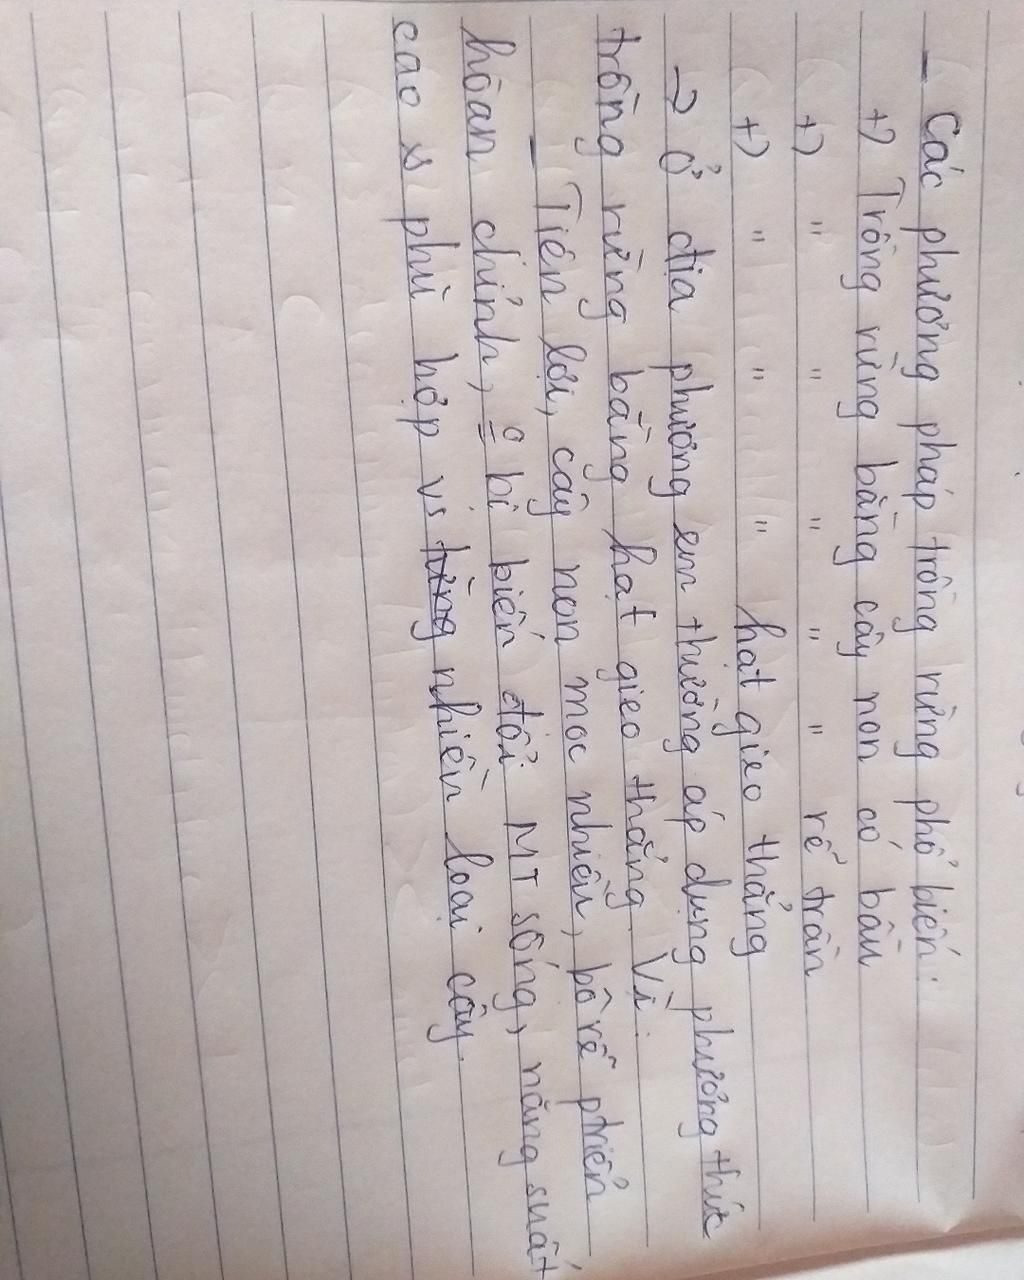 - Các phương pháp trồng rừng phổ biến:
+) Trồng rừng bằng cây non có bầu
+) " " " " " rễ trần
+) " " " hạt gieo thẳng
→ Ở địa phương em thường áp dụng phương thức
trồng rừng bằng hạt gieo thẳng. Vì:
- Tiện lợi, cây non mọc nhiều, bộ rễ phiển
hoàn chỉnh, bị biến đổi MT sống, năng suất
cao phù hợp vs từng nhiều loại cây.